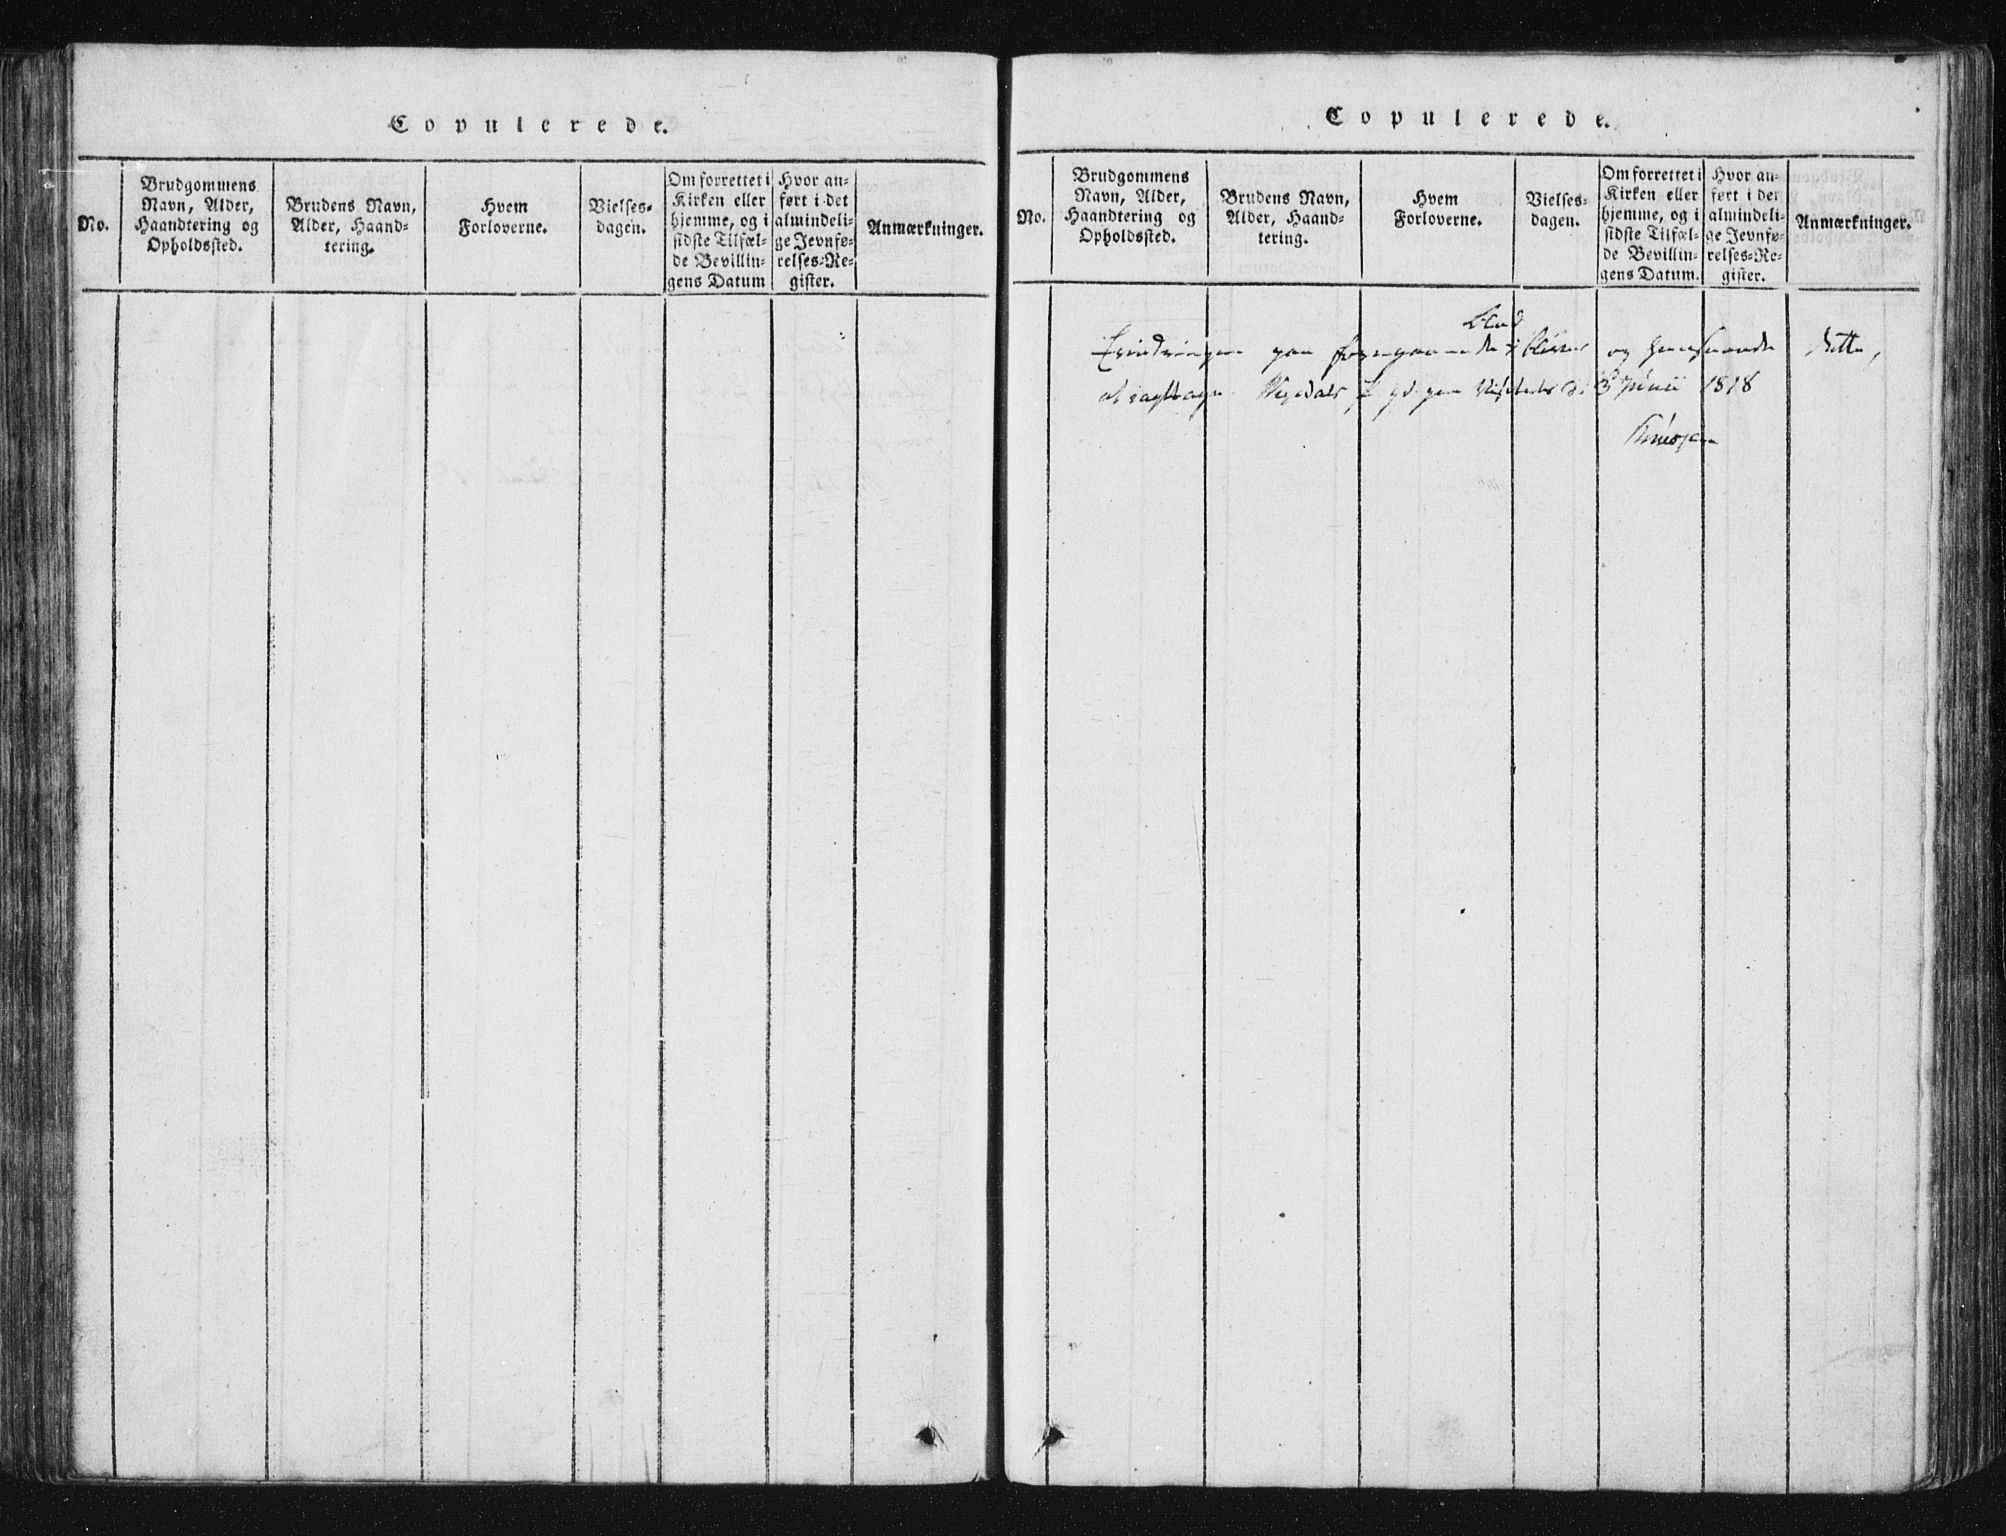 Copulerede.
No.
Brudgommens
Navn, Alder,
Haandtering og
Opholdssted.
Brudens Navn,
Alder, Haand-
tering.
Hvem
Forloverne.
Vielses-
dagen.
Om forrettet i
Kirken eller
hjemme, og i
sidste Tilfæl-
de Bevillin-
gens Datum
Hvor an-
ført i det
almindeli-
ge Jevnfø-
relses-Re-
gister.
Anmærkninger.
Copulerede.
No.
Brudgommens
Navn, Alder,
Haandtering og
Opholdssted.
Brudens Navn,
Alder, Haand-
tering.
Hvem
Forloverne.
Vielses-
dagen.
Om forrettet i
Kirken eller
hjemme, og i
sidste Tilfæl-
de Bevillin-
gens Datum.
Hvor an-
ført i det
almindeli-
ge Jevnfø-
relses-Re-
gister.
Anmærkninger.
Blad
Erindringen paa foregaaende og dette,
3 Junii 1818